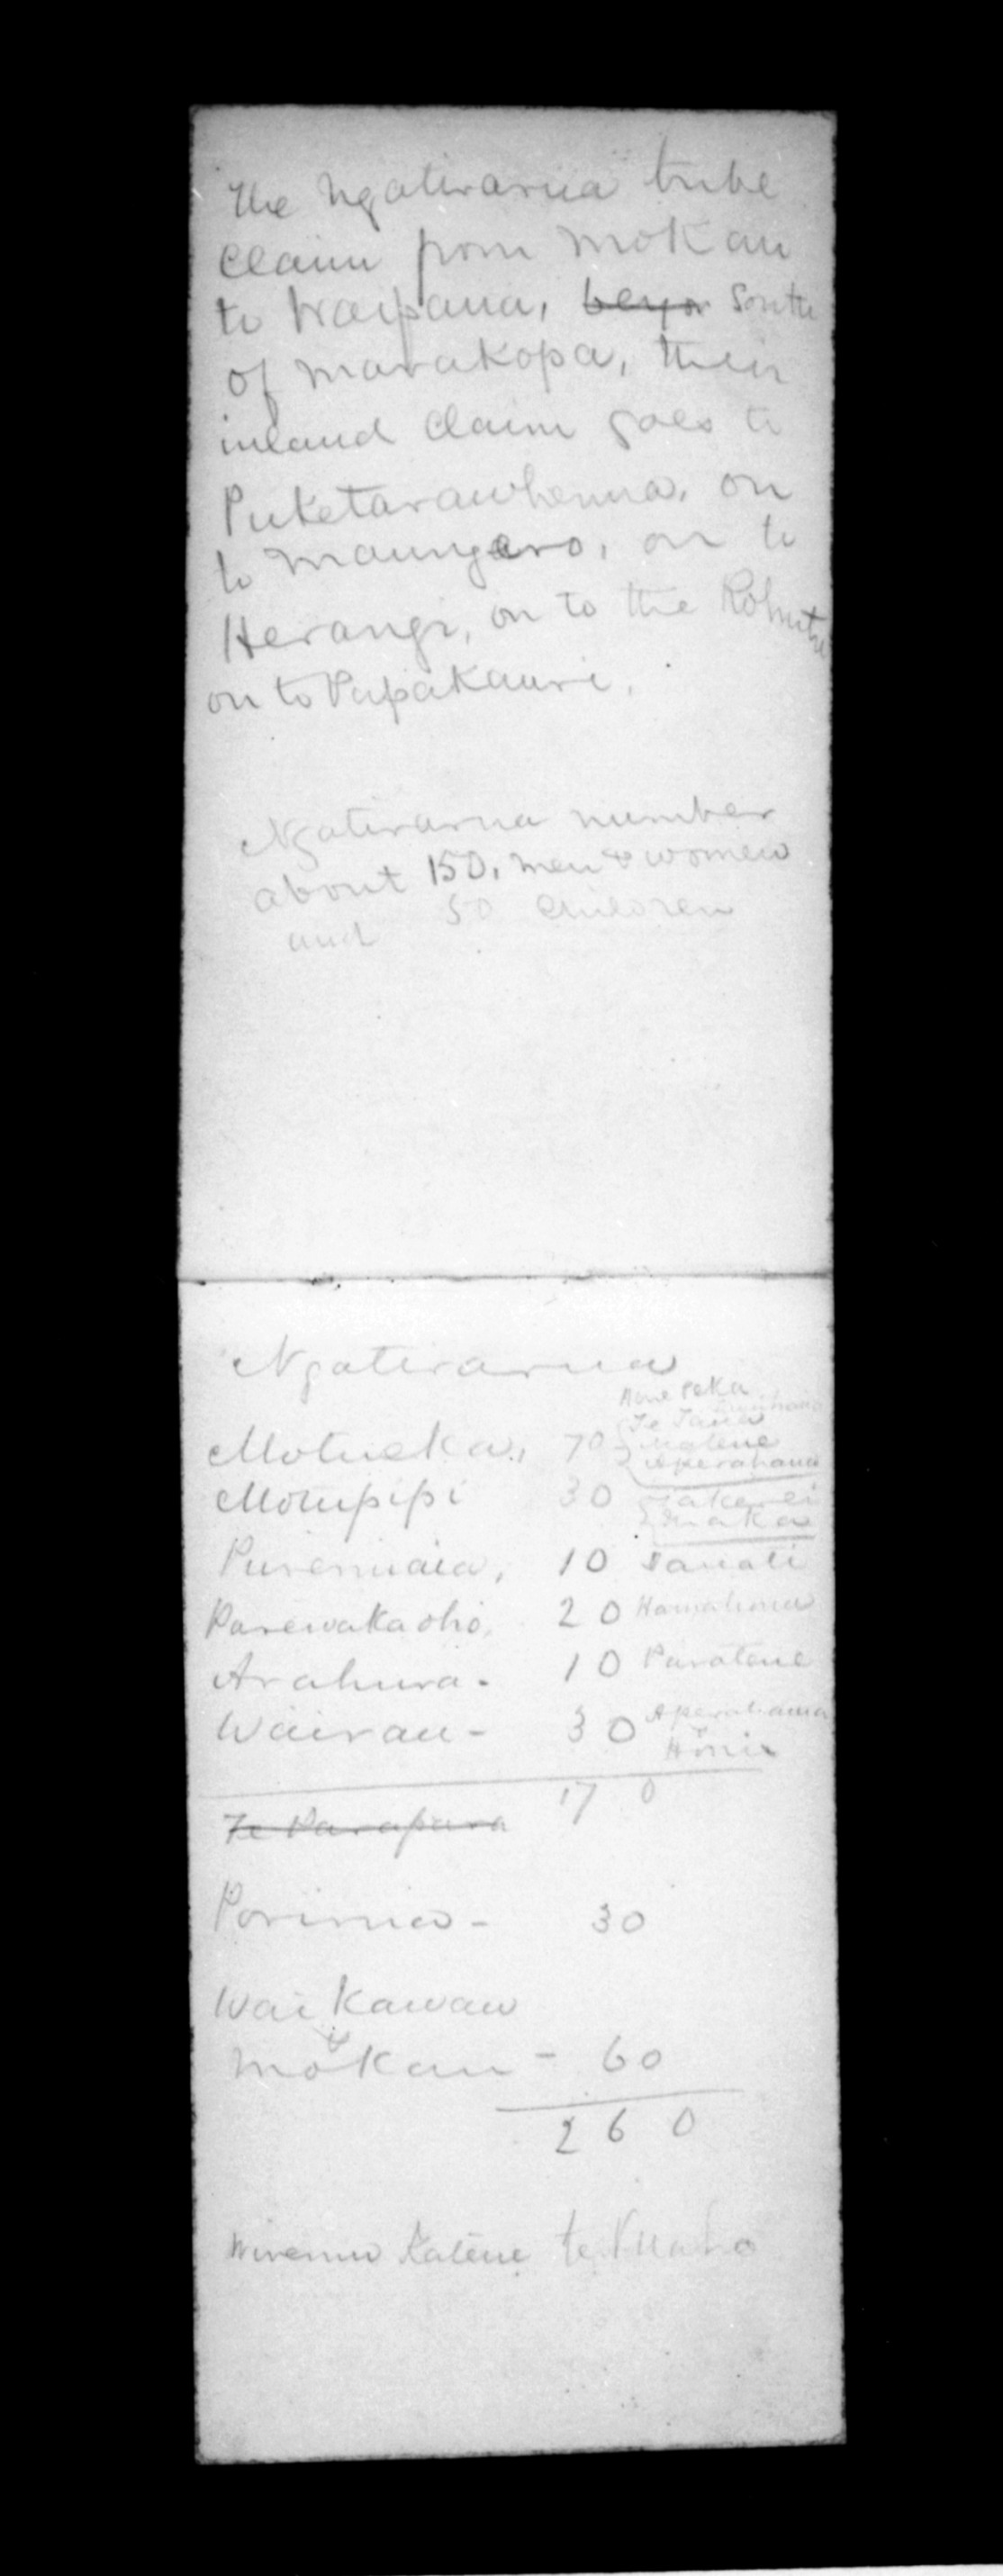 The Ngatirarua tribe
claim from Mokau
to Waipaua, beyon South
of Marakopa, their
inland claim goes to
Puketarawhenua, on
to Maungaro, on to
Herangi, on to the
on to Papakauri.
Ngatirarua number
about 150, men & women
and 50 children
Ngatirarua
Hone Peka
Te Tana
Motueka, 70 Matene
Aperahama
Motupipi 30 Takerei
Maka
Puremuaia, 10 Tanati
Parewakaoho, 20 Hamahona
Arahura. 10 Paratene
Wairau - 30 Aperahama
& Honi
170
Te Parapara
Porirua - 30
Waikawau
&
Mokau - 60
260
Wiremu Katene te